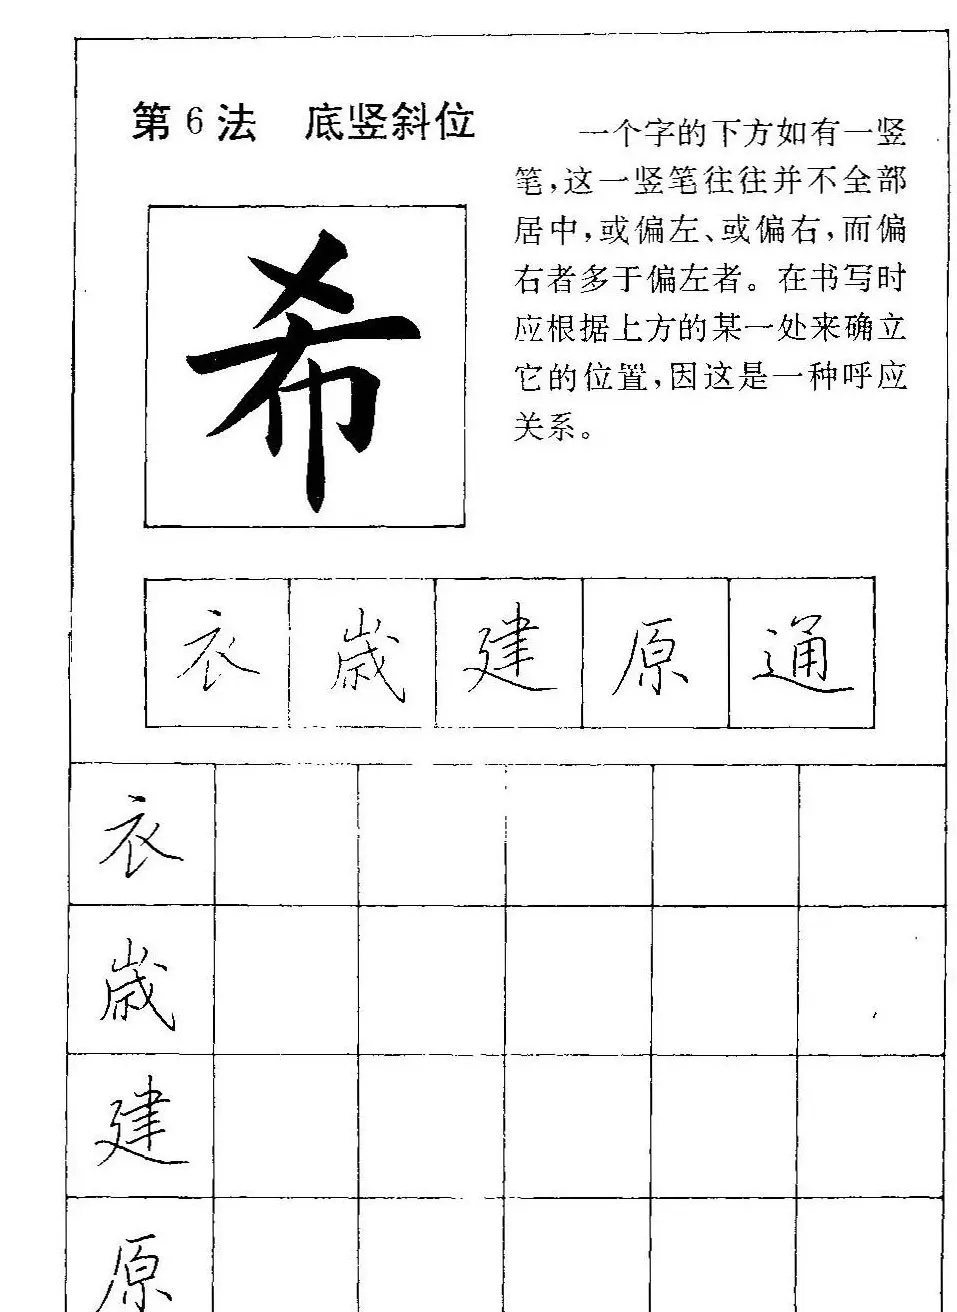 第6法 底竖斜位
一个字的下方如有一竖
笔,这一竖笔往往并不全部
居中,或偏左、或偏右,而偏
右者多于偏左者。在书写时
应根据上方的某一处来确立
它的位置,因这是一种呼应
关系。
希
衣 歲 建 原 通
衣
歲
建
原